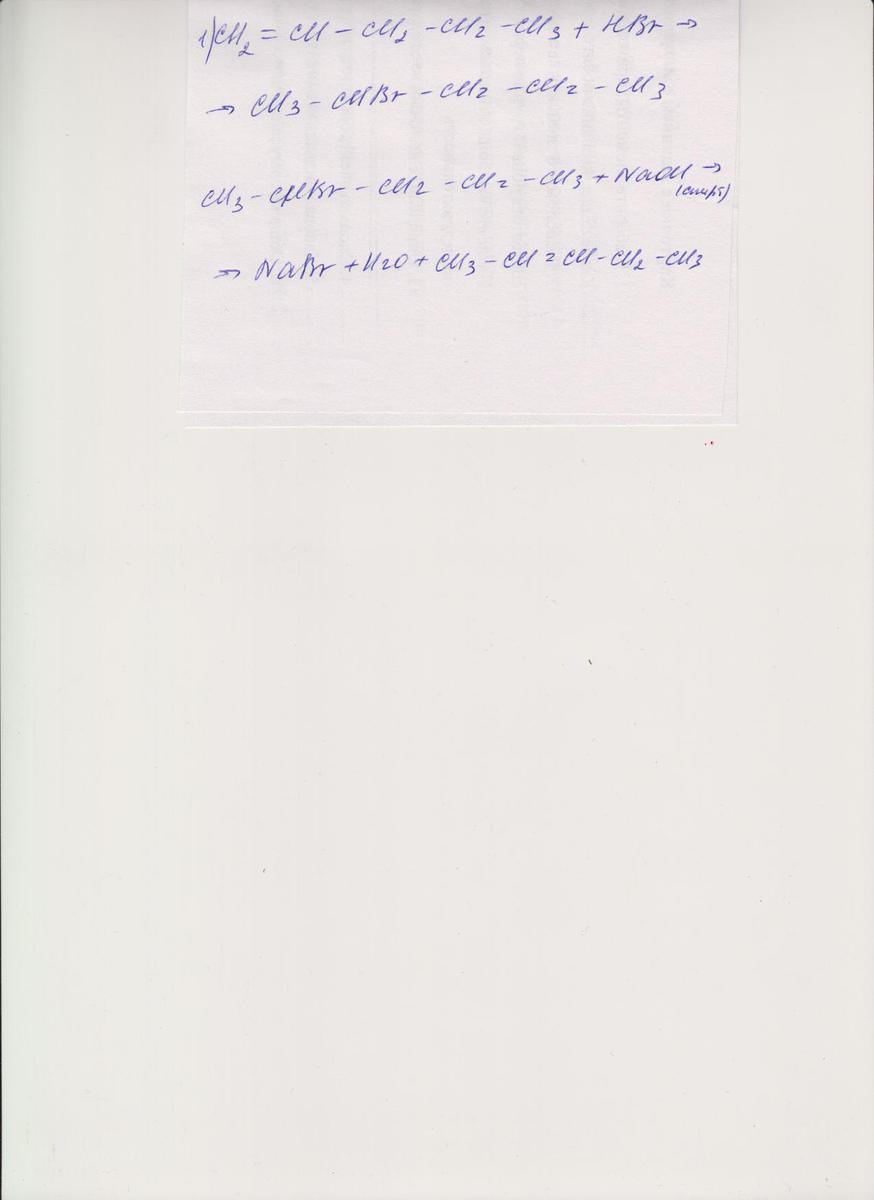 1) CH₂ = CH – CH₂ – CH₂ – CH₃ + HBr →
→ CH₃ – CHBr – CH₂ – CH₂ – CH₃
CH₃ – CHBr – CH₂ – CH₂ – CH₃ + NaOH →
(спирт)
→ NaBr + H₂O + CH₃ – CH = CH – CH₂ – CH₃